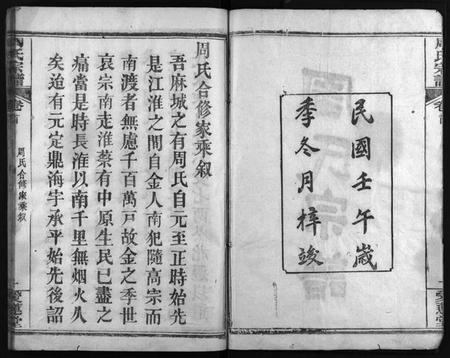 周氏宗譜
卷首
民國壬午歲
季冬月梓竣
愛蓮堂
周氏合修家乘叙
吾麻城之有周氏自元至正時始先
是江淮之間自金人南犯隨高宗而
南渡者無慮千百萬戸故金之季世
哀宗南走淮蔡有中原生民已盡之
痛當是時長淮以南千里無烟火久
矣迨有元定鼎海宇承平始先後詔
周氏宗譜
卷首
周氏合修家乘叙
一
愛蓮堂